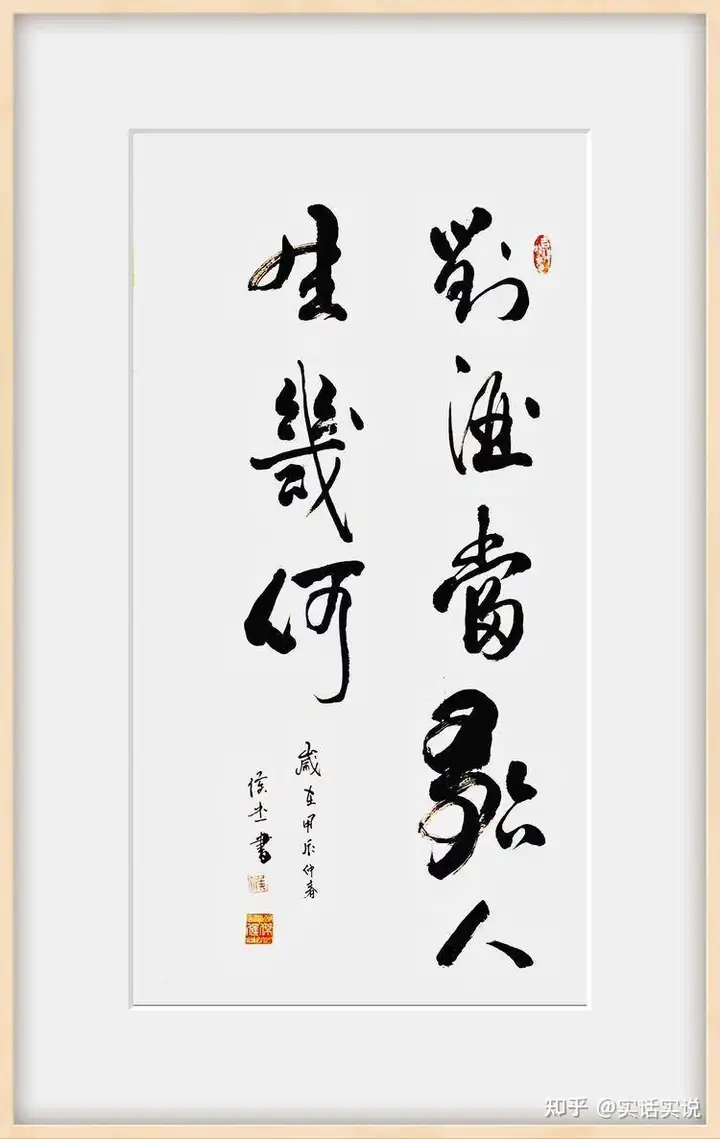 對酒當歌人
生幾何
歲在甲辰仲春
侯杰書
知乎 @实话实说